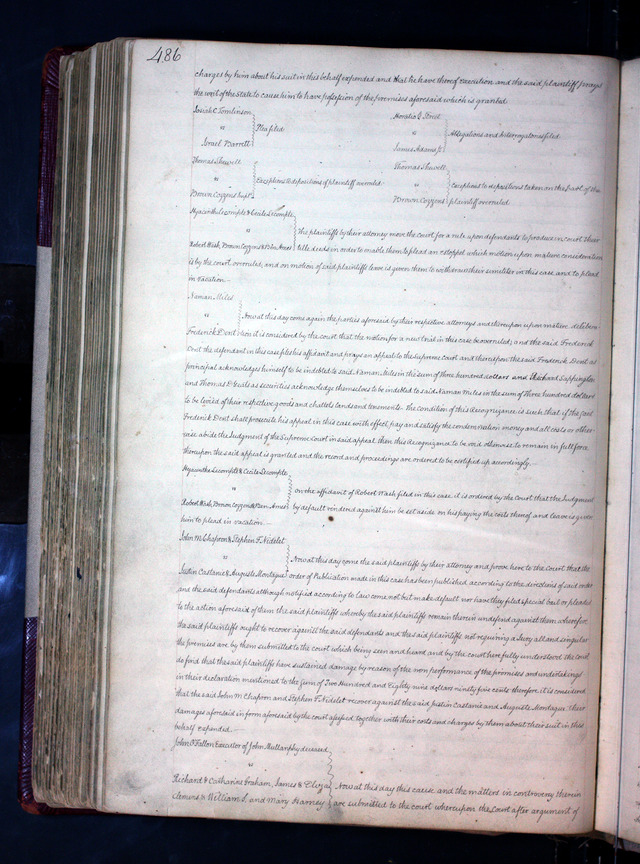 486
charges by him about his suit in this behalf expended and that he have thereof execution and the said plaintiff prays
the writ of the State to cause him to have possession of the premises aforesaid which is granted
Josiah C Tomlinson
vs Plea filed
Israel Barrett
Horatio
vs Allegations and Interrogatories filed
James Adams Jr
Thomas Shewell
vs Exceptions to depositions of plaintiff overruled
Brown Cozzens
Thomas Shewell
vs Exceptions to depositions taken on the part of the
Brown Cozzens plaintiff overruled
Hyacinth Lecompte & Cecile Lecompte
vs The plaintiffs by their attorney move the court for a rule upon defendants to produce in court their
Robert Wash, Brown Cozzens & Pain Ames title deeds in order to enable them to plead an estoppel which motion upon mature consideration
is by the court overruled, and on motion of said plaintiffs leave is given them to withdraw their similiter in this case and to plead
in vacation
Naman Miles
vs Now at this day come again the parties aforesaid by their respective attorneys and thereupon upon mature deliben-
Frederick Dent ration it is considered by the court that the motion for a new trial in this case be overruled; and the said Frederick
Dent the defendant in this case files his affidavit and prays an appeal to the Supreme court and thereupon the said Frederick Dent as
principal acknowledges himself to be indebted to said Naman Miles in the sum of three hundred dollars and Richard Sappington
and Thomas as securities acknowledge themselves to be indebted to said Naman Miles in the sum of three hundred dollars
to be levied of their respective goods and chattels lands and tenements. The condition of this Recognizance is such that if the said
Frederick Dent shall prosecute his appeal in this case with effect, pay and satisfy the condemnation money and all costs or other-
wise abide the Judgment of the Supreme Court in said appeal then this Recognizance to be void otherwise to remain in full force
thereupon the said appeal is granted and the record and proceedings are ordered to be certified up accordingly
Hyacinth Lecompte & Cecile Lecompte
vs On the affidavit of Robert Wash filed in this case it is ordered by the Court that the Judgment
Robert Wash, Brown Cozzens & Pain Ames by default rendered against him be set aside on his paying the costs thereof and leave is given
him to plead in vacation
John M. Chapron & Stephen F. Nidelet
vs Now at this day come the said plaintiffs by their attorney and prove here to the Court that the
Justin Castanie & Auguste Montague order of Publication made in this case has been published according to the directions of said order
and the said defendants although notified according to law come not but make default nor have they filed special bail or pleaded
to the action aforesaid of them the said plaintiffs whereby the said plaintiffs remain therein undefended against them wherefore
the said plaintiffs ought to recover against the said defendants and the said plaintiffs not requiring a Jury all and singular
the premises are by them submitted to the court which being seen and heard and by the court here fully understood the court
do find that the said plaintiffs have sustained damage by reason of the non performance of the promises and undertakings
in their declaration mentioned to the sum of Two Hundred and Eighty nine dollars ninety five cents therefore it is considered
that the said John M Chapron and Stephen F. Nidelet recover against the said Justin Castanie and Auguste Montague their
damages aforesaid in form aforesaid by the court assessed together with their costs and charges by them about their suit in this
behalf expended
John O'Fallon Executor of John Mullanphy deceased
vs
Richard & Catharine Graham, James & Eliza Now at this day this cause and the matters in controversy therein
Clemens & William S. and Mary Harney are submitted to the court whereupon the Court after argument of